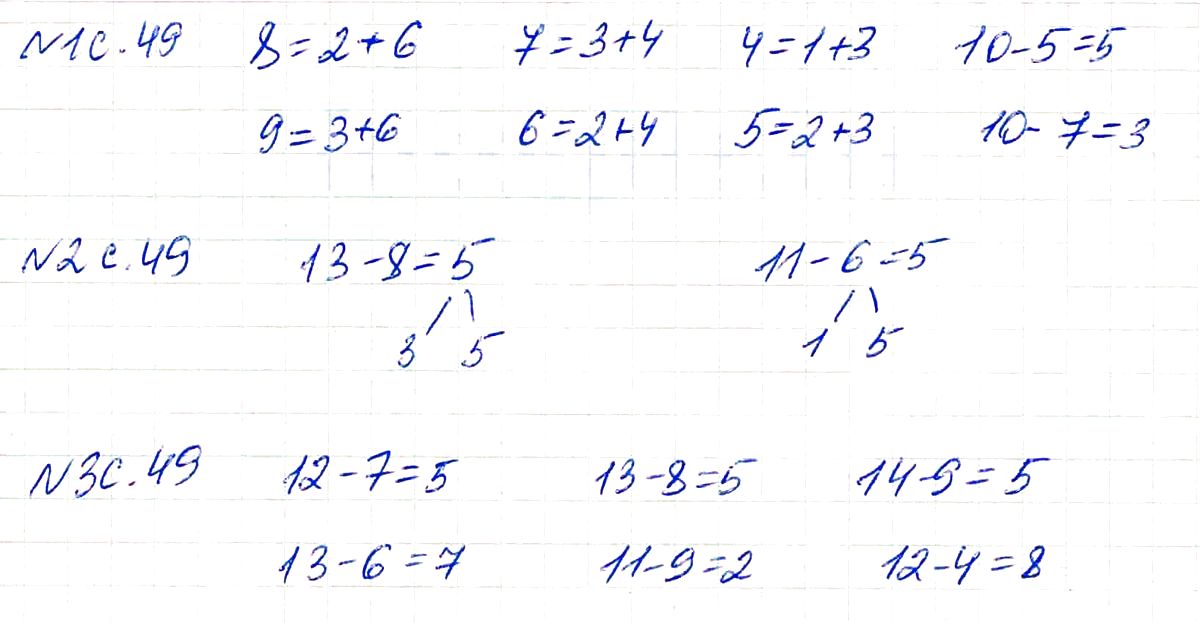 №1 с.49 8=2+6 7=3+4 4=1+3 10-5=5
9=3+6 6=2+4 5=2+3 10-7=3
№2 с.49 13-8=5 11-6=5
3 5 1 5
№3 с.49 12-7=5 13-8=5 14-9=5
13-6=7 11-9=2 12-4=8